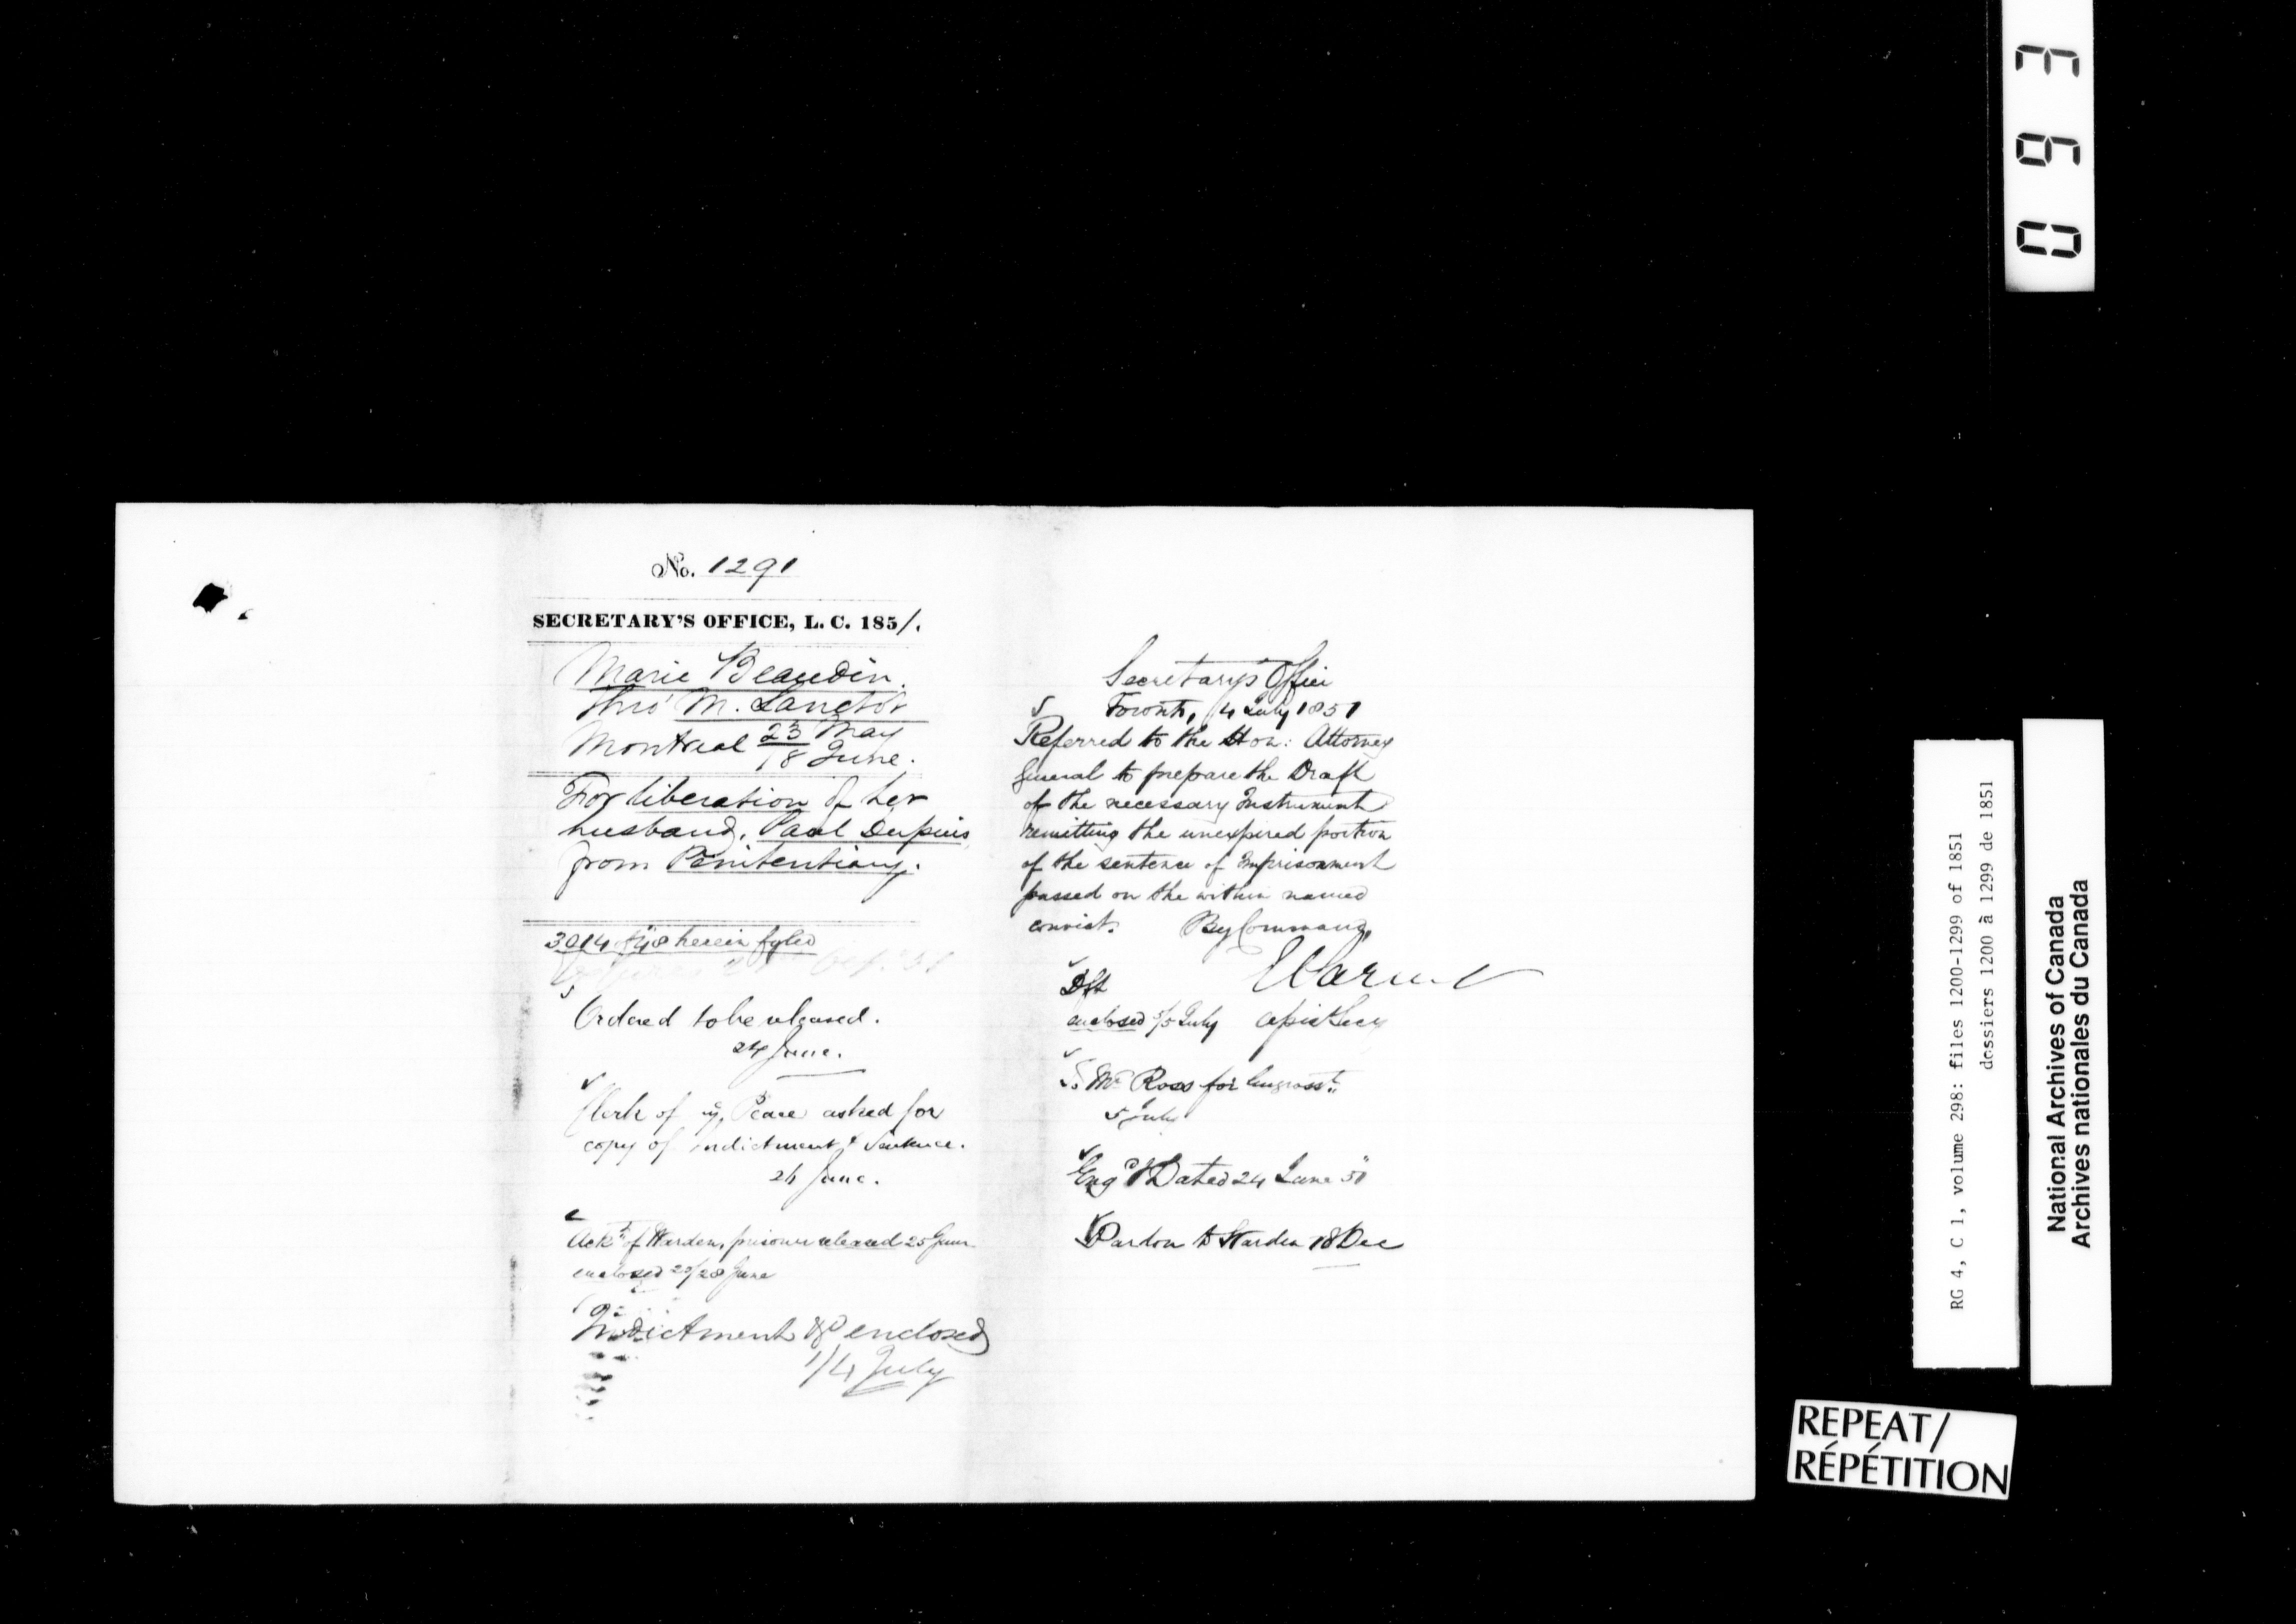 No. 1291
SECRETARY'S OFFICE, L. C. 1851.
Marie Beaudin.
thro' M. Lanctôt
Montreal 23 May
18 June.
For liberation of her
husband, Paul Dupuis
from Penitentiary.
3014 of 48 herein fyled
Ordered to be released.
24 June.
Clerk of ye Peace asked for
copy of indictment & sentence.
26 June.
Ackt of Warden, prisoner released 25 June
enclosed 28 June
Indictment &c enclosed
1/4 July
Secretary's Office
Toronto, 4 July 1851
Referred to the Hon: Attorney
General to prepare the Draft
of the necessary Instrument
remitting the unexpired portion
of the sentence of Imprisonment
passed on the within named
convict. By Command,
Dft
enclosed 5/5 July
To Mr Ross for Engrosst.
5 July
Engd & Dated 24 June 51
Pardon to Warden 18 Dec
0693
RG 4, C 1, volume 298: files 1200-1299 of 1851
dossiers 1200 à 1299 de 1851
National Archives of Canada
Archives nationales du Canada
REPEAT/
RÉPÉTITION